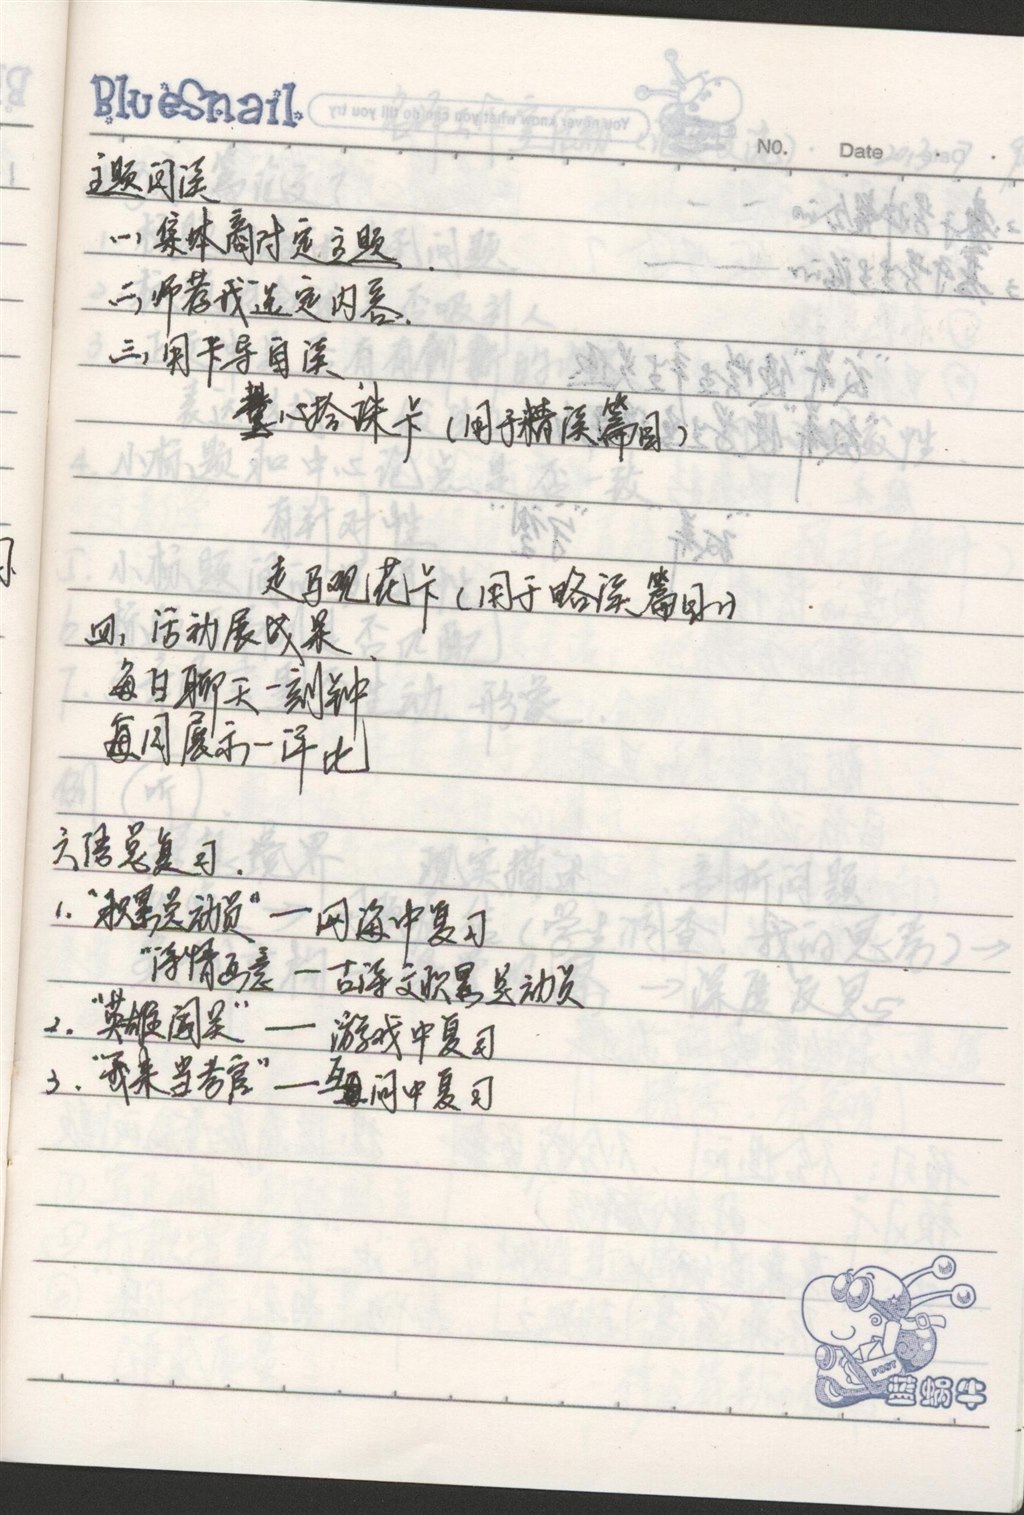 BlueSnail
You never know what you can do till you try
NO. Date
主题阅读
一、集体商讨定主题
二、师荐我选定内容.
三、用卡导自读
慧心拾珠卡(用于精读篇目)
走马观花卡(用于略读篇目)
四、活动展成果.
每日聊天一刻钟
每周展示一评比
六、语总复习.
1. "积累总动员" — 网海中复习
"诗情画意 — 古诗文积累总动员
2. "英雄闯关" — 游戏中复习
3. "我来当考官" — 互问中复习
POST
蓝蜗牛